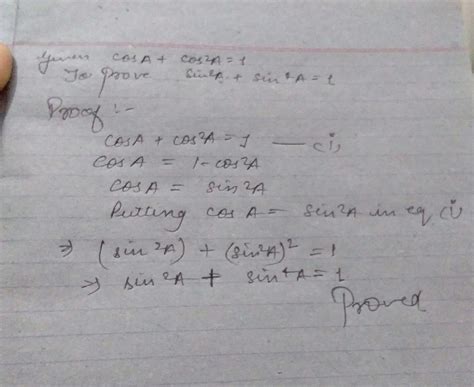 Given cosA + cos²A = 1
To prove sin²A + sin⁴A = 1
Proof :-
cosA + cos²A = 1 — (i)
cosA = 1 - cos²A
cosA = sin²A
Putting cosA = sin²A in eq (i)
⇒ (sin²A) + (sin²A)² = 1
⇒ sin²A + sin⁴A = 1
Proved